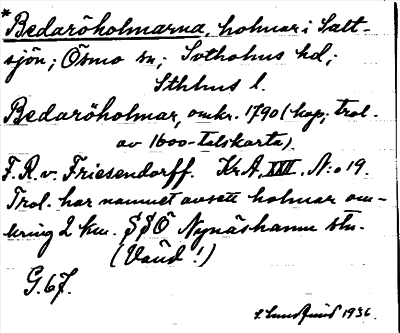 *Bedaröholmarna, holmar i Salt-
sjön; Ösmo sn; Sotholms hd;
Sthlms l.
Bedaröholmar, omkr. 1790 (kop. trol.
av 1600-talskarta).
F. R. v. Friesendorff. Kr.A, XVI. N:o 19.
Trol. har namnet avsett holmar om-
kring 2 km. SSÖ Nynäshamn stn.
(Vänd!)
G. 67.
1936.